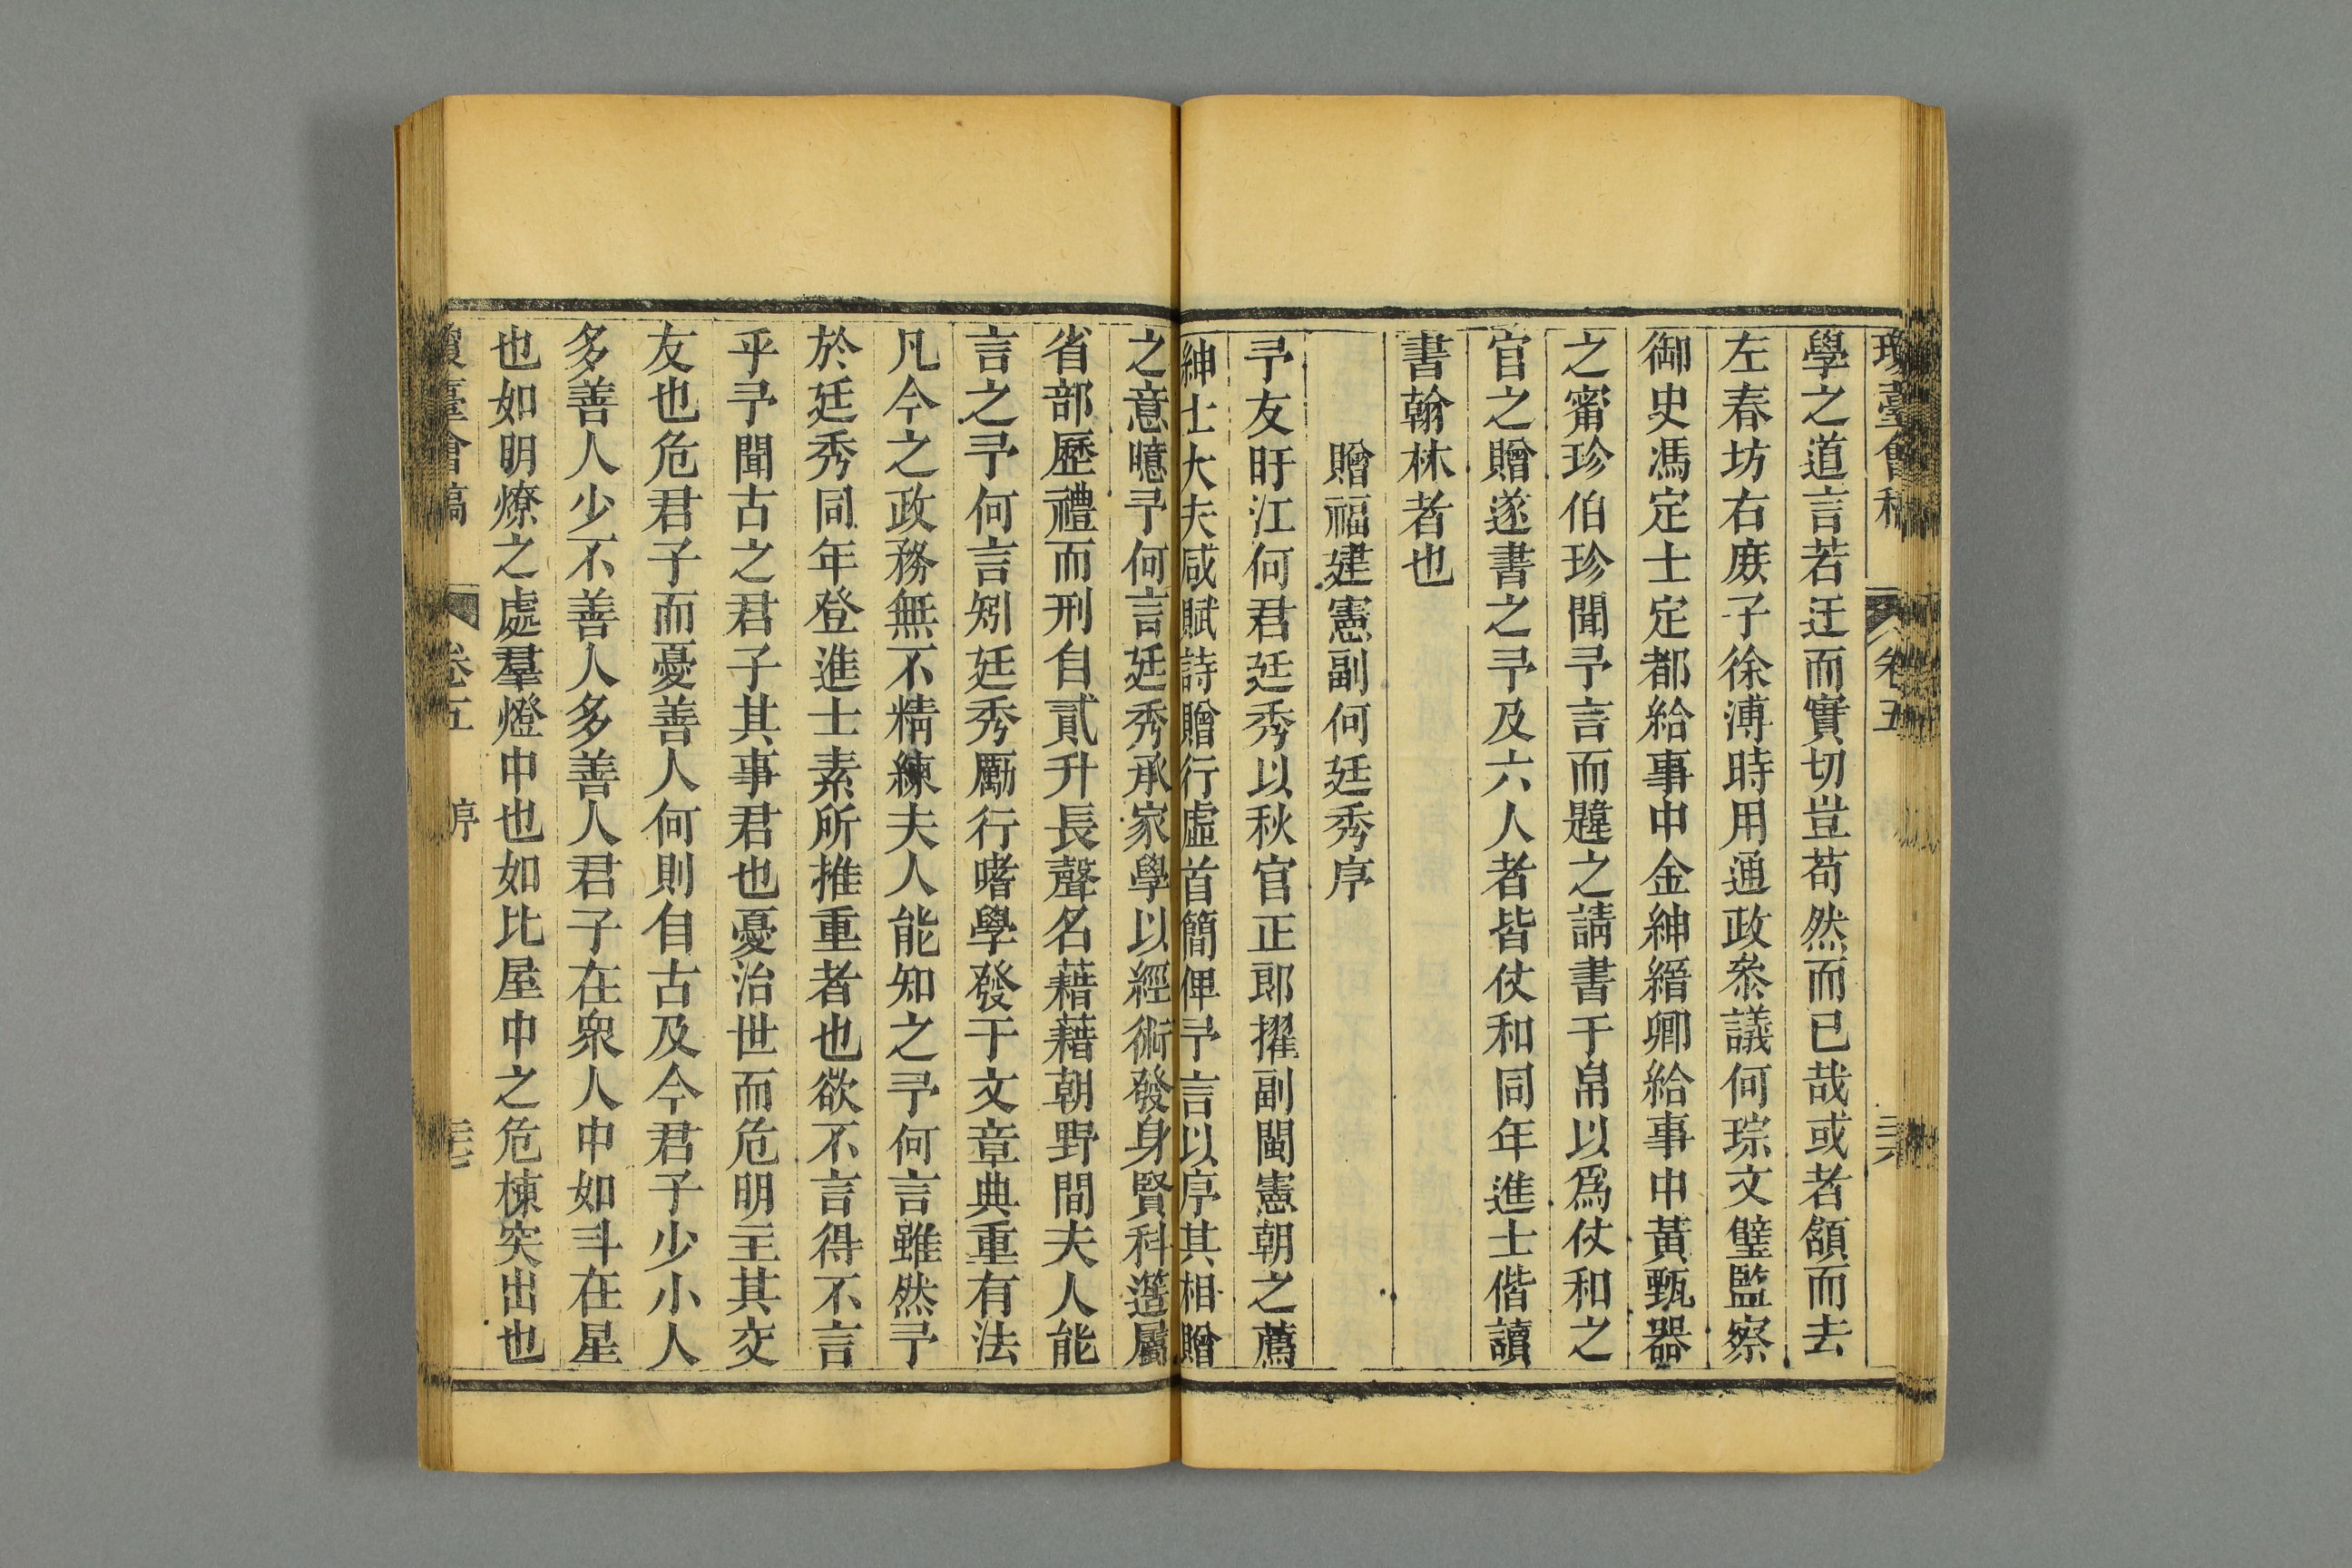 瓊臺會稿 卷五 三六
學之道言若迂而實切豈苟然而已哉或者頷而去
左春坊右庶子徐溥時用通政叅議何琮文璧監察
御史馮定士定都給事中金紳縉卿給事中黃甄器
之甯珍伯珍聞予言而韙之請書于帛以爲仗和之
官之贈遂書之予及六人者皆仗和同年進士偕讀
書翰林者也
贈福建憲副何廷秀序
予友盱江何君廷秀以秋官正郎擢副閩憲朝之薦
紳士大夫咸賦詩贈行虛首簡俾予言以序其相贈
之意噫予何言廷秀承家學以經術發身賢科選屬
省部歷禮而刑自貳升長聲名藉藉朝野間夫人能
言之予何言矧廷秀勵行嗜學發于文章典重有法
凡今之政務無不精練夫人能知之予何言雖然予
於廷秀同年登進士素所推重者也欲不言得不言
乎予聞古之君子其事君也憂治世而危明主其交
友也危君子而憂善人何則自古及今君子少小人
多善人少不善人多善人君子在衆人中如斗在星
也如明燎之處羣燈中也如比屋中之危棟突出也
瓊臺會稿 卷五 序 三七